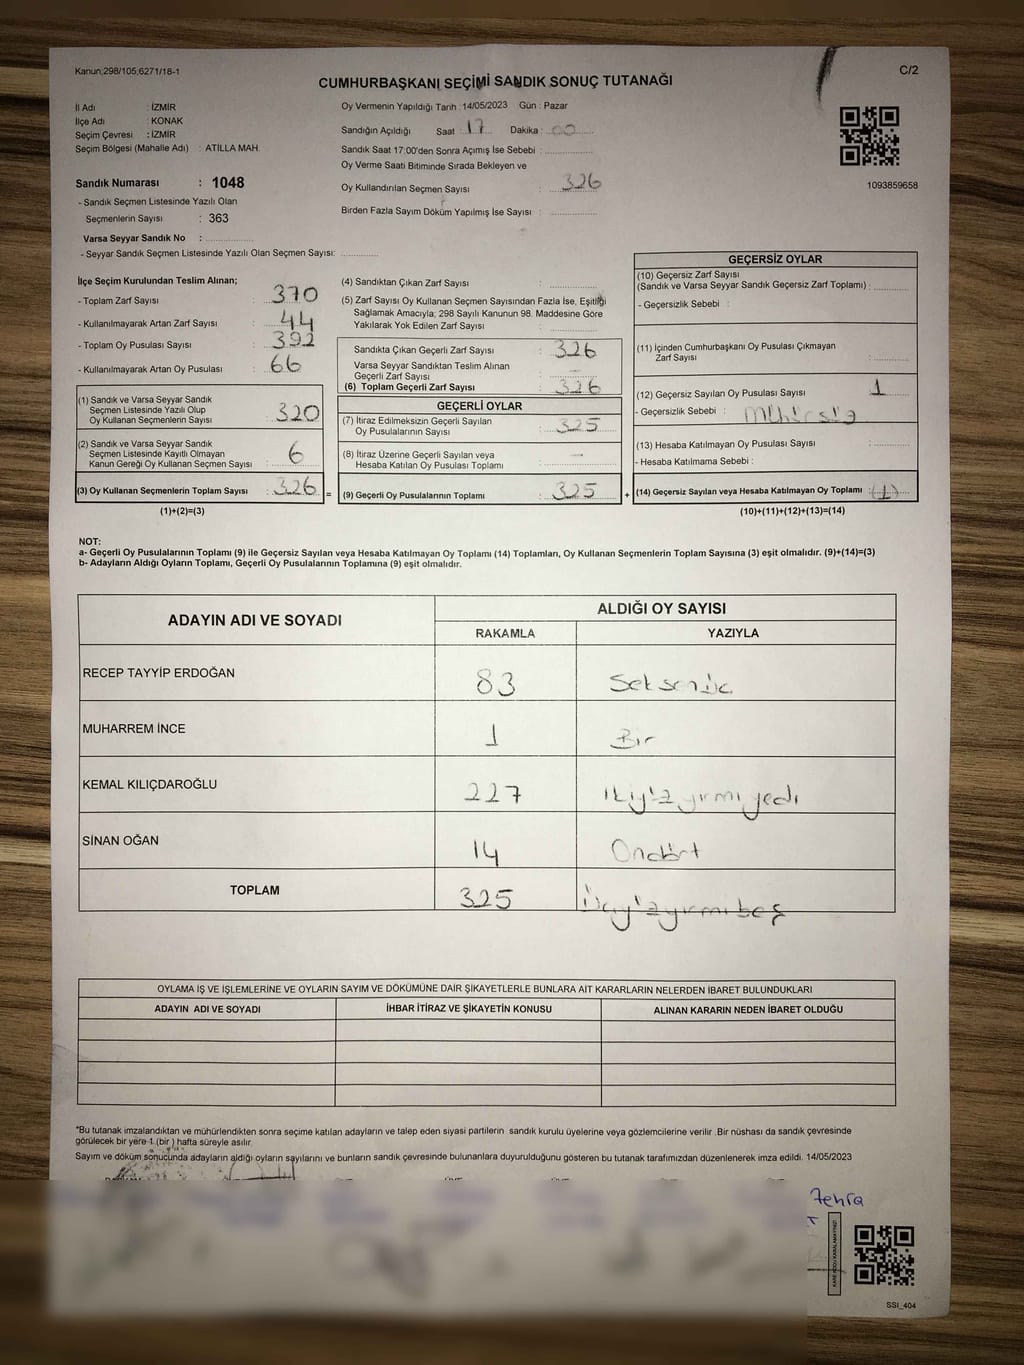 Kanun;298/105,6271/18-1
C/2
CUMHURBAŞKANI SEÇİMİ SANDIK SONUÇ TUTANAĞI
İl Adı : İZMİR
İlçe Adı : KONAK
Seçim Çevresi : İZMİR
Seçim Bölgesi (Mahalle Adı) : ATİLLA MAH.
Sandık Numarası : 1048
- Sandık Seçmen Listesinde Yazılı Olan
Seçmenlerin Sayısı : 363
Varsa Seyyar Sandık No :
- Seyyar Sandık Seçmen Listesinde Yazılı Olan Seçmen Sayısı:
Oy Vermenin Yapıldığı Tarih : 14/05/2023 Gün : Pazar
Sandığın Açıldığı Saat : 17 Dakika : 00
Sandık Saat 17:00'den Sonra Açımış İse Sebebi :
Oy Verme Saati Bitiminde Sırada Bekleyen ve
Oy Kullandırılan Seçmen Sayısı : 326
Birden Fazla Sayım Döküm Yapılmış İse Sayısı :
1093859658
İlçe Seçim Kurulundan Teslim Alınan;
- Toplam Zarf Sayısı : 370
- Kullanılmayarak Artan Zarf Sayısı : 44
- Toplam Oy Pusulası Sayısı : 392
- Kullanılmayarak Artan Oy Pusulası : 66
(1) Sandık ve Varsa Seyyar Sandık
Seçmen Listesinde Yazılı Olup
Oy Kullanan Seçmenlerin Sayısı : 320
(2) Sandık ve Varsa Seyyar Sandık
Seçmen Listesinde Kayıtlı Olmayan
Kanun Gereği Oy Kullanan Seçmen Sayısı : 6
(3) Oy Kullanan Seçmenlerin Toplam Sayısı : 326 =
(1)+(2)=(3)
(4) Sandıktan Çıkan Zarf Sayısı :
(5) Zarf Sayısı Oy Kullanan Seçmen Sayısından Fazla İse, Eşitliği
Sağlamak Amacıyla; 298 Sayılı Kanunun 98. Maddesine Göre
Yakılarak Yok Edilen Zarf Sayısı :
Sandıkta Çıkan Geçerli Zarf Sayısı : 326
Varsa Seyyar Sandıktan Teslim Alınan
Geçerli Zarf Sayısı : —
(6) Toplam Geçerli Zarf Sayısı : 326
GEÇERLİ OYLAR
(7) İtiraz Edilmeksizin Geçerli Sayılan
Oy Pusulalarının Sayısı : 325
(8) İtiraz Üzerine Geçerli Sayılan veya
Hesaba Katılan Oy Pusulası Toplamı : —
(9) Geçerli Oy Pusulalarının Toplamı : 325 +
GEÇERSİZ OYLAR
(10) Geçersiz Zarf Sayısı
(Sandık ve Varsa Seyyar Sandık Geçersiz Zarf Toplamı) :
- Geçersizlik Sebebi :
(11) İçinden Cumhurbaşkanı Oy Pusulası Çıkmayan
Zarf Sayısı :
(12) Geçersiz Sayılan Oy Pusulası Sayısı : 1
- Geçersizlik Sebebi : Mühürsüz
(13) Hesaba Katılmayan Oy Pusulası Sayısı :
- Hesaba Katılmama Sebebi :
(14) Geçersiz Sayılan veya Hesaba Katılmayan Oy Toplamı : (1)
(10)+(11)+(12)+(13)=(14)
NOT:
a- Geçerli Oy Pusulalarının Toplamı (9) ile Geçersiz Sayılan veya Hesaba Katılmayan Oy Toplamı (14) Toplamları, Oy Kullanan Seçmenlerin Toplam Sayısına (3) eşit olmalıdır. (9)+(14)=(3)
b- Adayların Aldığı Oyların Toplamı, Geçerli Oy Pusulalarının Toplamına (9) eşit olmalıdır.
ADAYIN ADI VE SOYADI
ALDIĞI OY SAYISI
RAKAMLA YAZIYLA
RECEP TAYYİP ERDOĞAN 83 Seksenüç
MUHARREM İNCE 1 Bir
KEMAL KILIÇDAROĞLU 227 İkiyüz yirmi yedi
SİNAN OĞAN 14 Ondört
TOPLAM 325 Üçyüzyirmibeş
OYLAMA İŞ VE İŞLEMLERİNE VE OYLARIN SAYIM VE DÖKÜMÜNE DAİR ŞİKAYETLERLE BUNLARA AİT KARARLARIN NELERDEN İBARET BULUNDUKLARI
ADAYIN ADI VE SOYADI
İHBAR İTİRAZ VE ŞİKAYETİN KONUSU
ALINAN KARARIN NEDEN İBARET OLDUĞU
*Bu tutanak imzalandıktan ve mühürlendikten sonra seçime katılan adayların ve talep eden siyasi partilerin sandık kurulu üyelerine veya gözlemcilerine verilir .Bir nüshası da sandık çevresinde
görülecek bir yere 1 (bir ) hafta süreyle asılır.
Sayım ve döküm sonucunda adayların aldığı oyların sayılarını ve bunların sandık çevresinde bulunanlara duyurulduğunu gösteren bu tutanak tarafımızdan düzenlenerek imza edildi. 14/05/2023
Zehra
KARE KODU KARALAMAYINIZ!
SSI_404